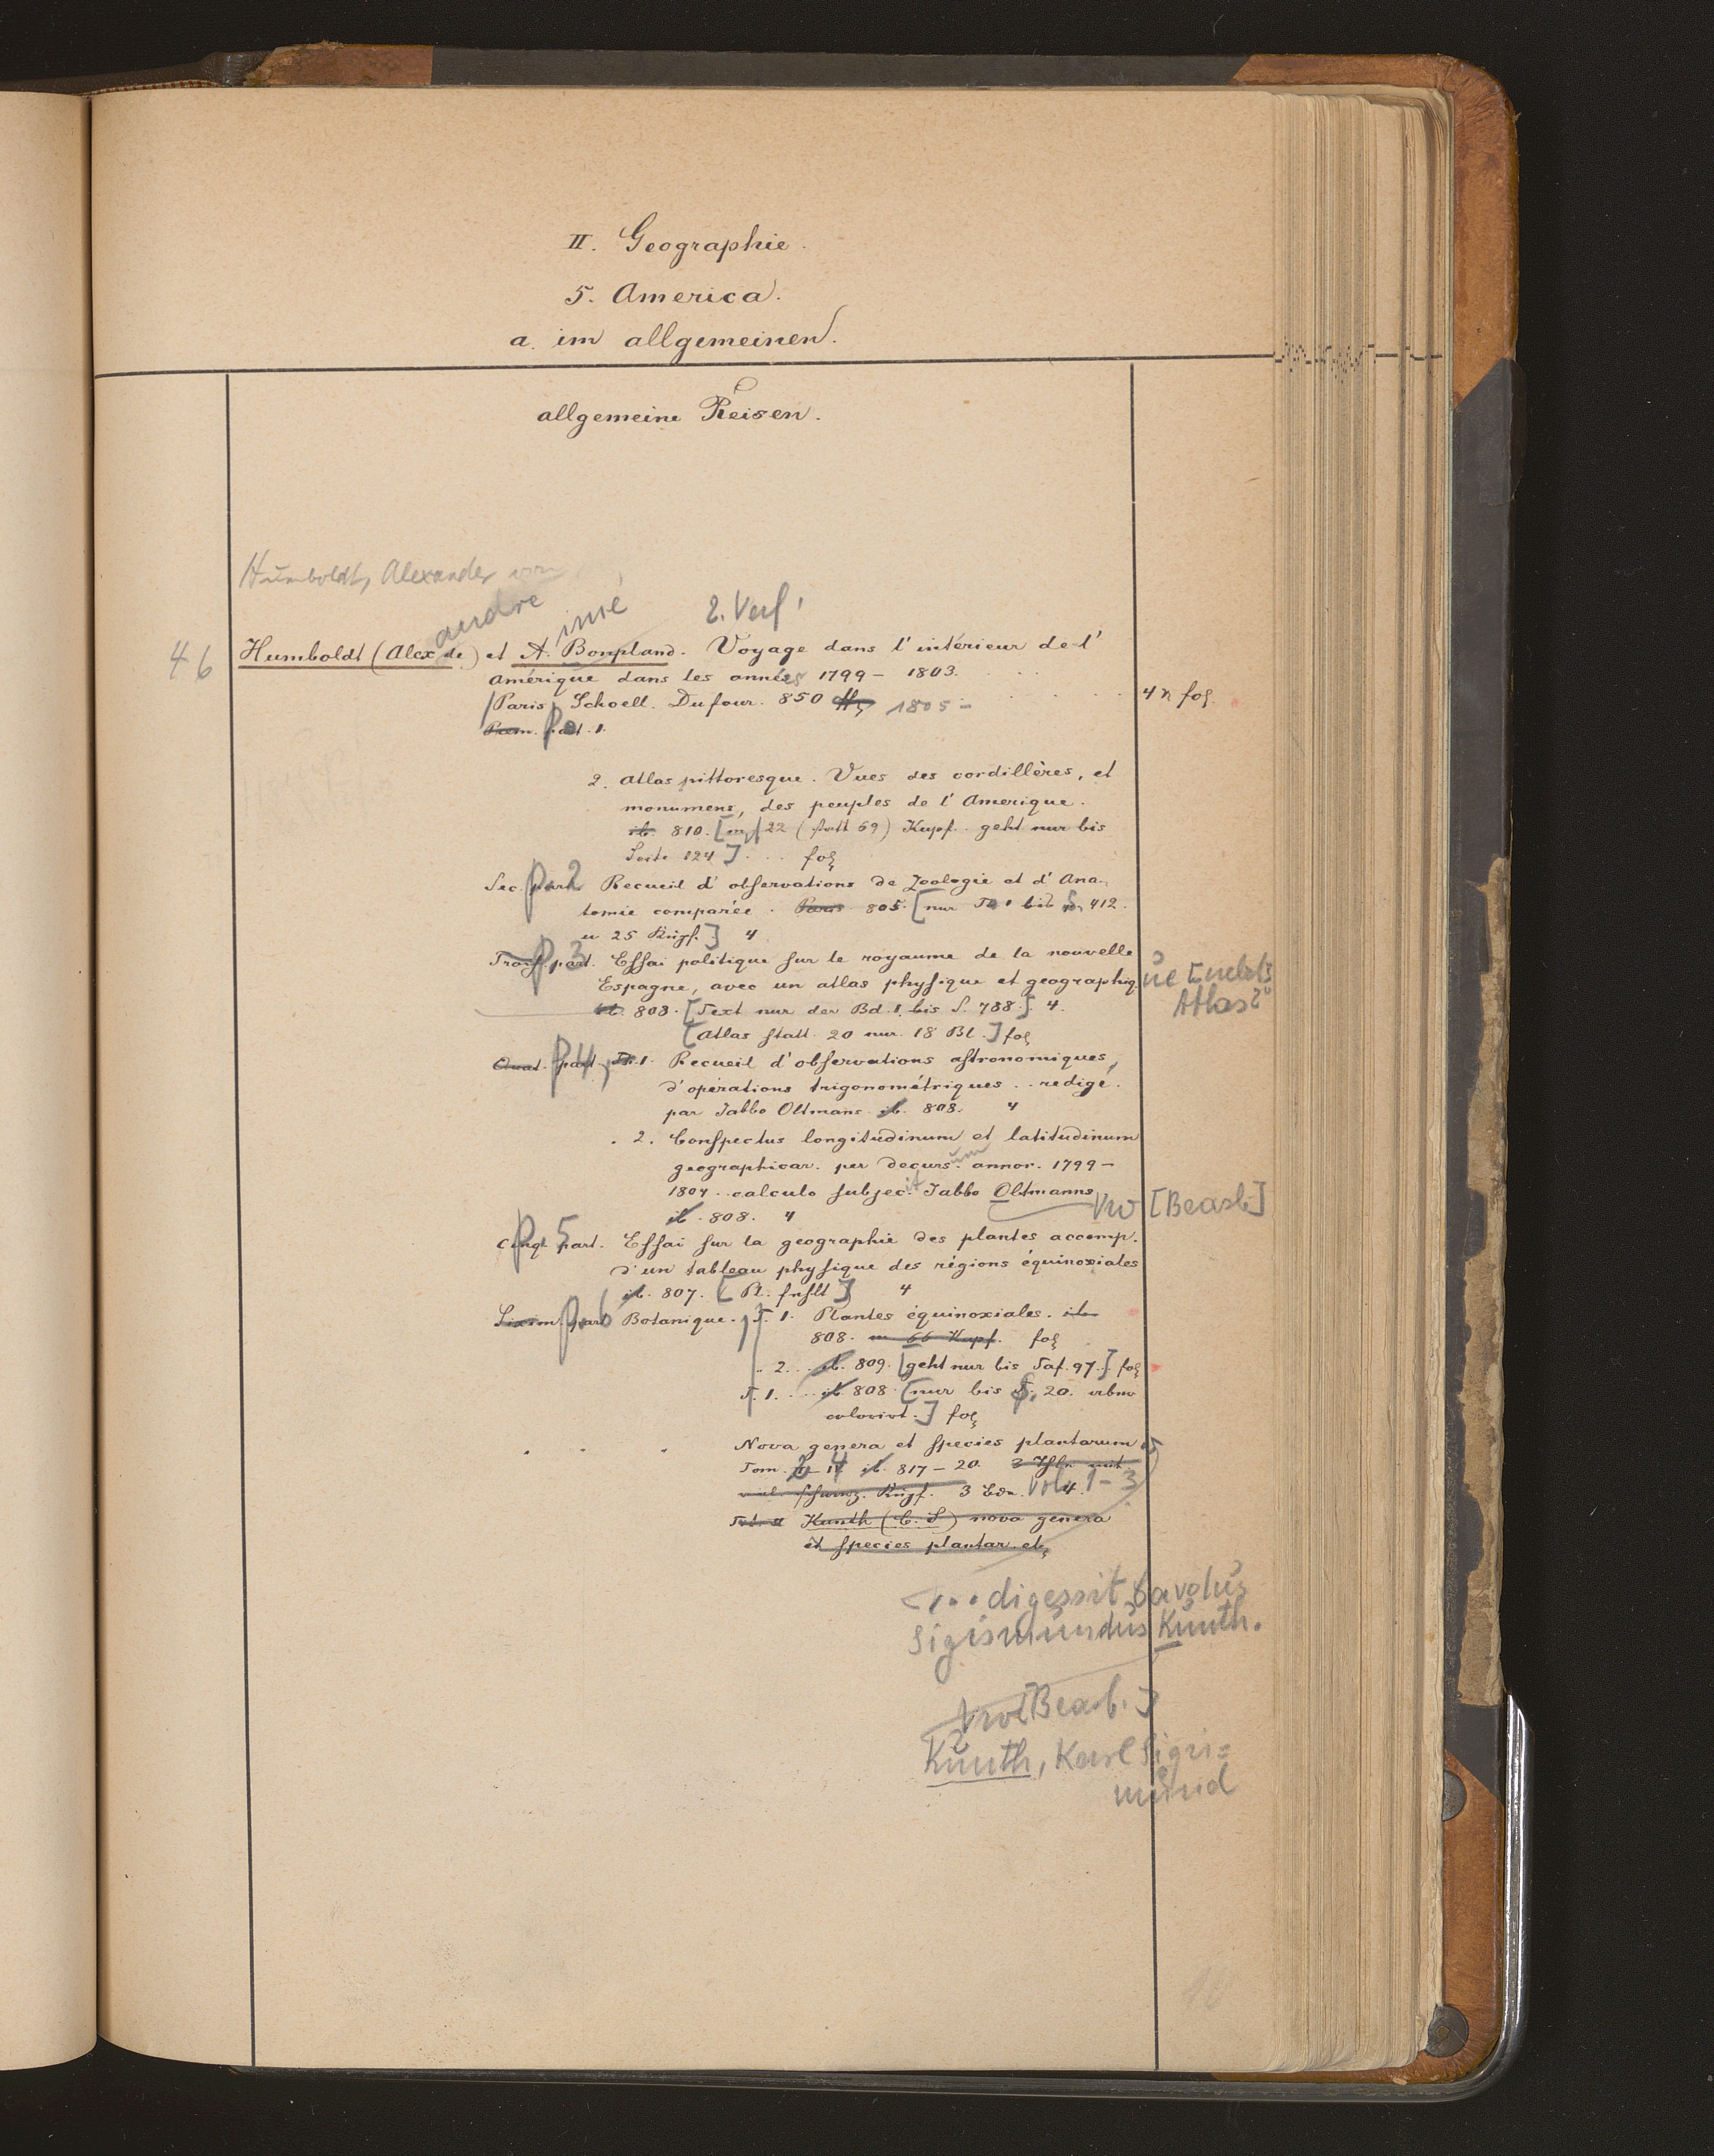 II. Geographie.
5. America.
a. im allgemeinen.
allgemeine Reisen.
Humboldt, Alexander von
andre imé 2. Verf.
46 Humboldt (Alex de) et A. Bonpland. Voyage dans l'intérieur de l'
Amérique dans les années 1799 - 1803.
Paris, Schoell. Dufour. 850 1805 - 4 n fol.
Prem. part. 1.
2. Atlas pittoresque. Vues des cordillères, et
monumens, des peuples de l'Amerique.
ib. 810. [m 22 (statt 69) Kupf. geht nur bis
Seite 124] . . . fol
Sec. part. P. 2 Recueil d'observations de Zoologie et d'Ana-
tomie comparée. Paris 805. [nur T. 1 bis S. 412.
u 25 Kupf.] 4
Trois. part. P. 3 Essai politique sur le royaume de la nouvelle
Espagne, avec un atlas physique et geographiq. ue [nebst
Atlas 2°
ib. 808. [Text nur der Bd. 1. bis S. 788.] 4.
[Atlas statt 20 nur 18 Bl.] fol
Quat. part. P. 4, T. 1. Recueil d'observations astronomiques,
d'opérations trigonométriques .. redigé.
par Jabbo Oltmans ib. 808. 4
. 2. Conspectus longitudinum et latitudinum
geographicar. per decurs.um annor. 1799 -
1804 . calculo subjec.it Jabbo Oltmanns Vw [Bearb.]
ib. 808. 4
Cinq. part. P. 5 Essai sur la geographie des plantes accomp.
d'un tableau physique des régions équinoxiales
ib. 807. [Pl. fehlt] 4
Sixiem. part P. 6 Botanique. T. 1. Plantes équinoxiales. ib
808. m 66 Kupf. fol
.. 2. .. ib. 809. [geht nur bis Taf. 97.] fol
T. 1. ... ib 808 [nur bis S. 20.
colorirt.] fol
Nova genera et species plantarum
Tom. 2 - 4 ib. 817 - 20.
schwarz. Kupf. 3 Bde. Vol. 1 - 3 4.
Kunth (C. S) nova genera
et species plantar. etc
... digessit Carolus
Sigismundus Kunth.
Vw [Bearb.]
Kunth, Karl Sigis=
mund